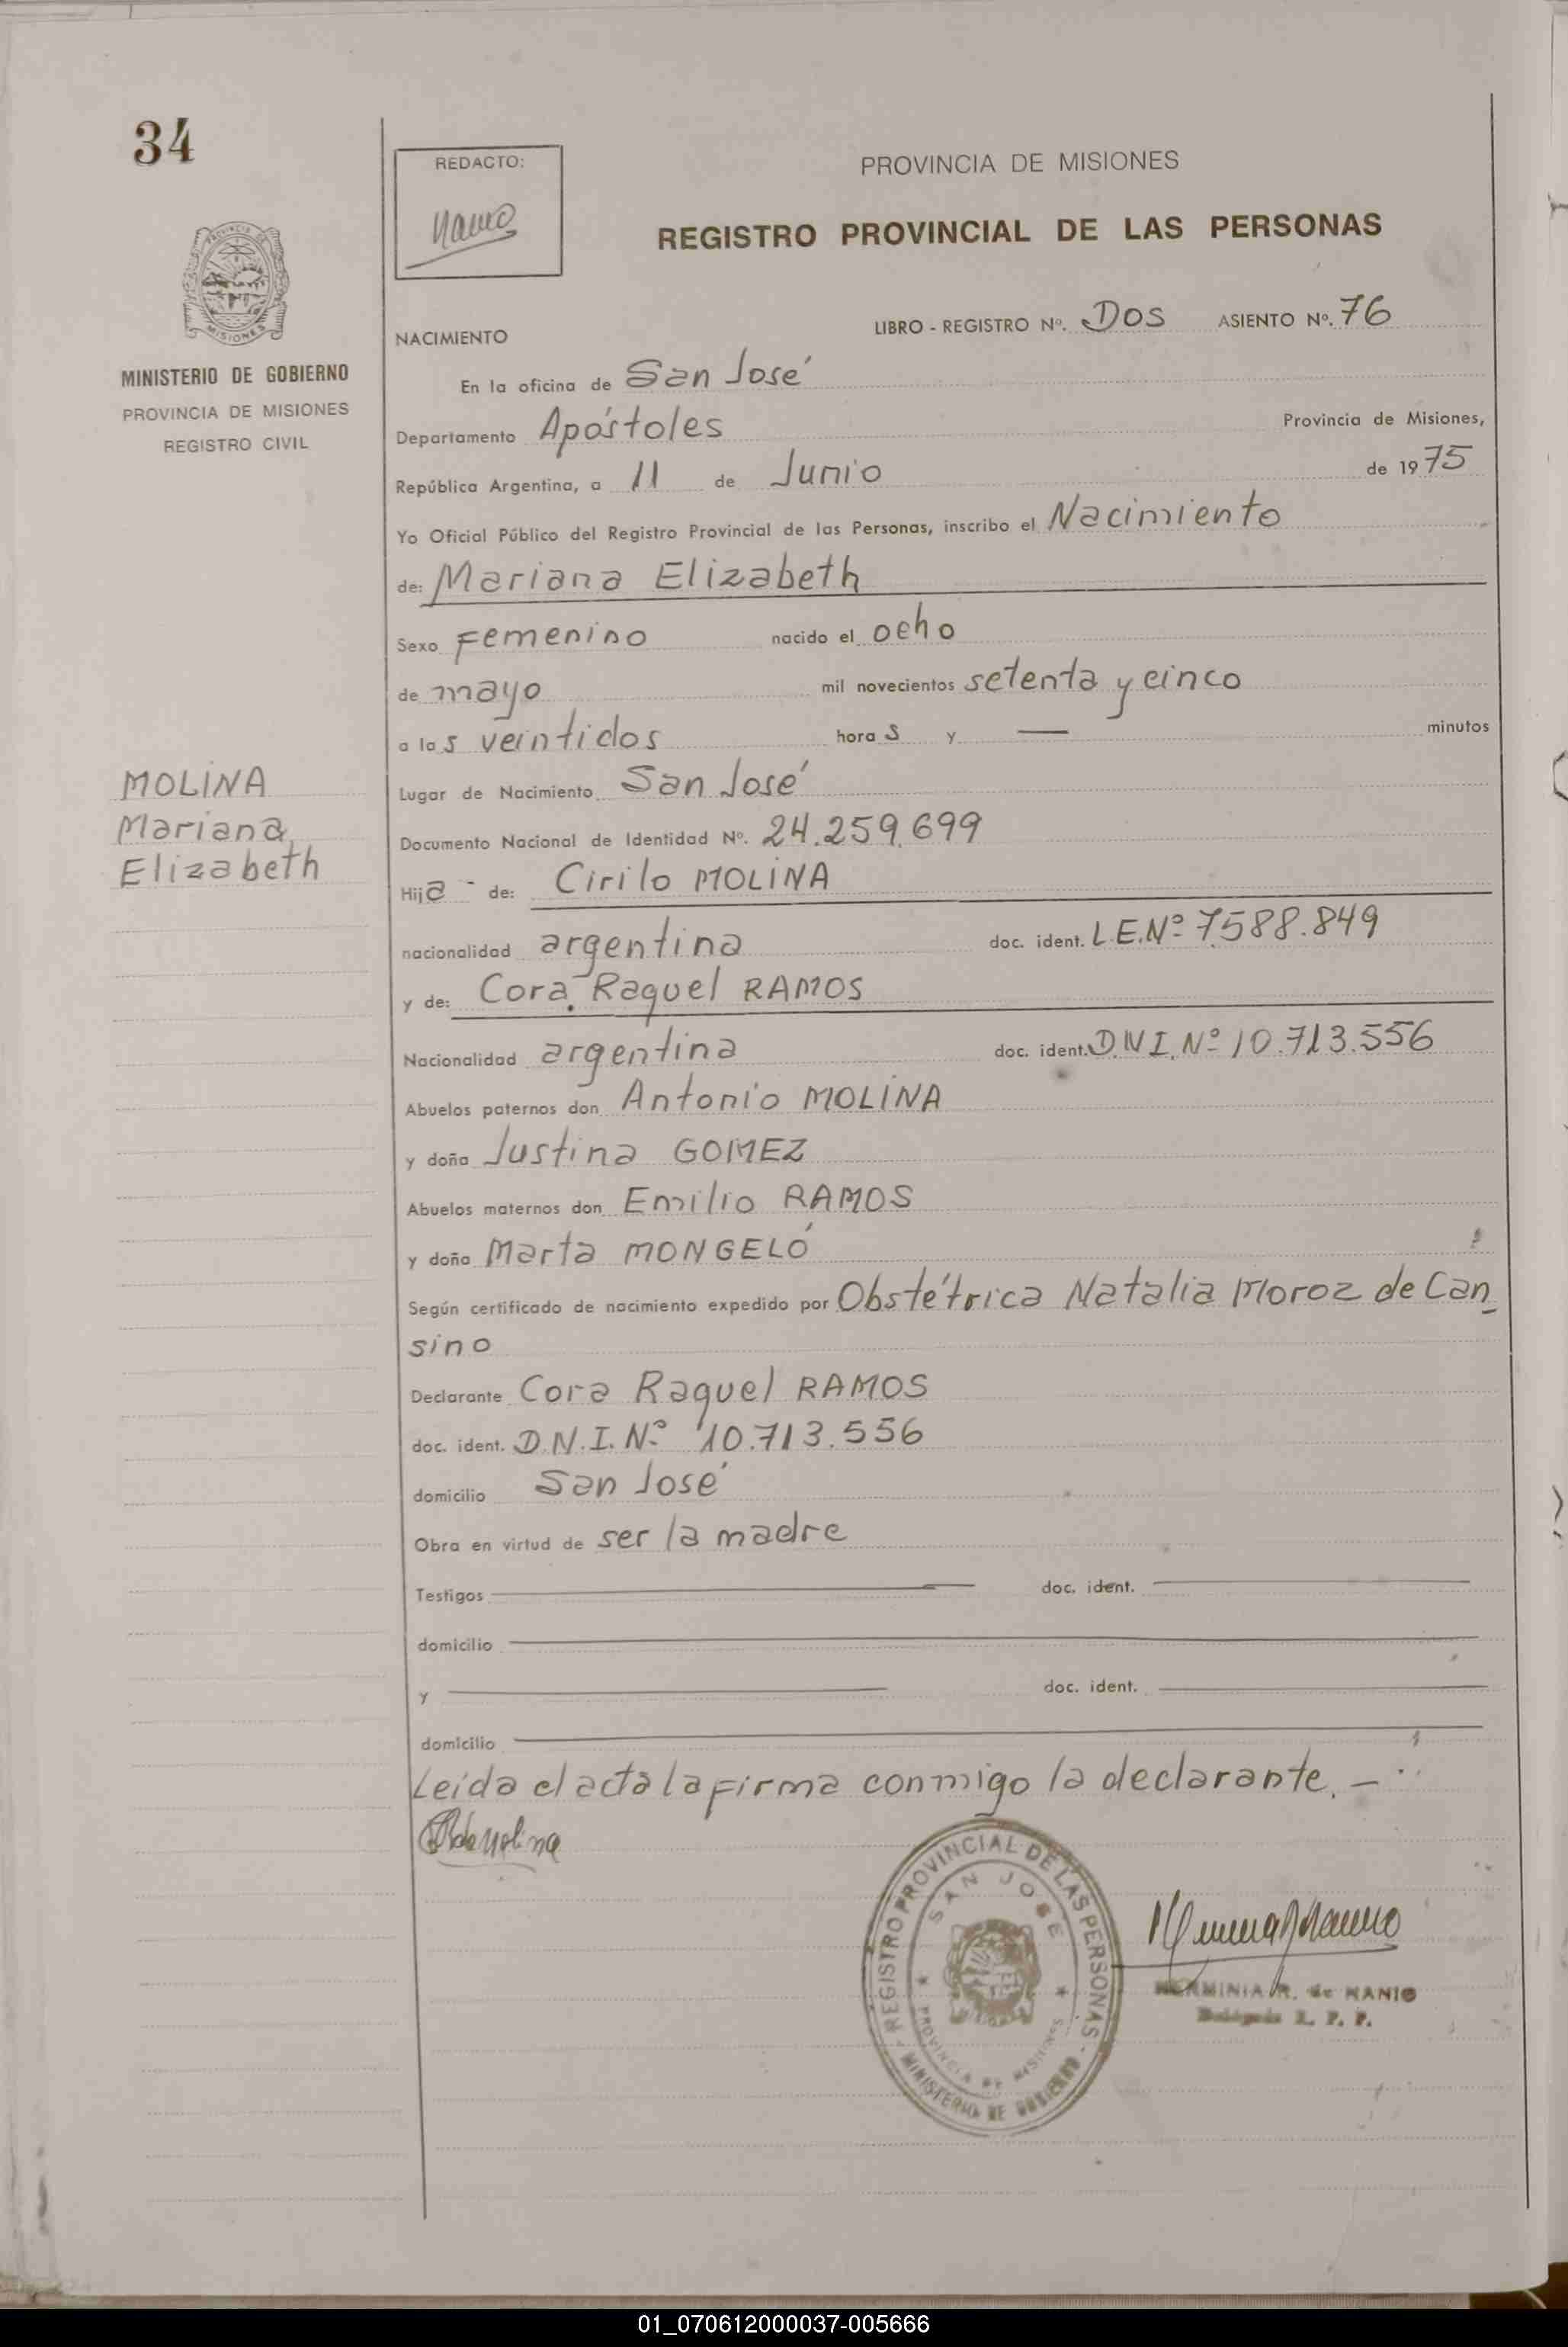 34
REDACTO:
PROVINCIA DE MISIONES
REGISTRO PROVINCIAL DE LAS PERSONAS
MINISTERIO DE GOBIERNO
PROVINCIA DE MISIONES
REGISTRO CIVIL
NACIMIENTO
LIBRO - REGISTRO Nº. Dos ASIENTO Nº. 76
En la oficina de San José
Departamento Apóstoles Provincia de Misiones,
República Argentina, a 11 de Junio de 1975
Yo Oficial Público del Registro Provincial de las Personas, inscribo el Nacimiento
de: Mariana Elizabeth
Sexo Femenino nacido el ocho
de mayo mil novecientos setenta y cinco
a las veintidos horas y — minutos
MOLINA
Mariana
Elizabeth
Lugar de Nacimiento San José
Documento Nacional de Identidad Nº. 24.259.699
Hija - de: Cirilo MOLINA
nacionalidad argentina doc. ident. L.E.Nº 7.588.849
y de: Cora Raquel RAMOS
Nacionalidad argentina doc. ident. D.N.I. Nº 10.713.556
Abuelos paternos don Antonio MOLINA
y doña Justina GOMEZ
Abuelos maternos don Emilio RAMOS
y doña Marta MONGELÓ
Según certificado de nacimiento expedido por Obstétrica Natalia Moroz de Can_
sino
Declarante Cora Raquel RAMOS
doc. ident. D.N.I. Nº 10.713.556
domicilio San José
Obra en virtud de ser la madre
Testigos doc. ident.
domicilio
y doc. ident.
domicilio
Leída el acta la firma conmigo la declarante. —
REGISTRO PROVINCIAL DE LAS PERSONAS - MINISTERIO DE GOBIERNO -
SAN JOSE
PROVINCIA DE MISIONES
HERMINIA R. de NANIO
R. P. P.
01_070612000037-005666